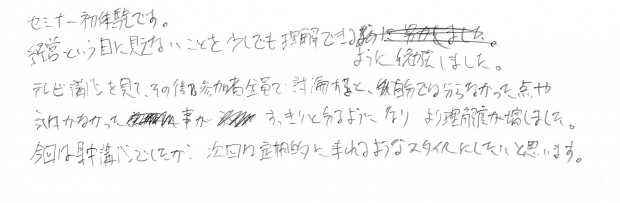 セミナー初体験です。
経営という目に見えないことを少しでも理解できる
ように勉強しました。
テレビ講座を見て、その後参加者全員で討論すると、自分では分らなかった点や
気付かなかった事がすっきりと分るようになり より理解度が増しました。
今回は集中講座でしたが、次回は定期的に来れるようなスタイルにしたいと思います。